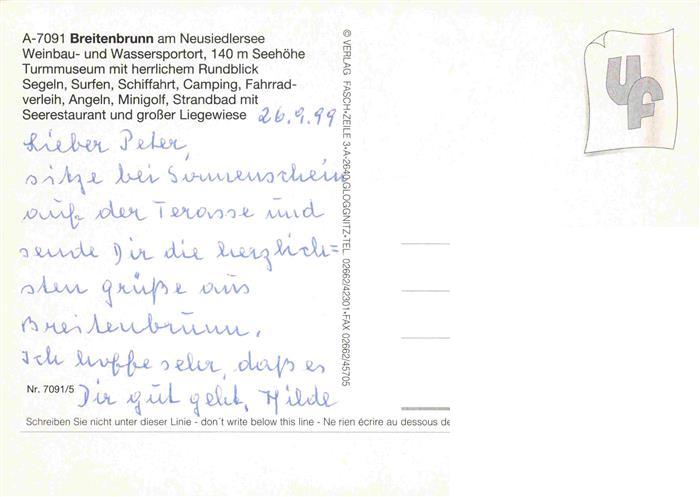 A-7091 Breitenbrunn am Neusiedlersee
Weinbau- und Wassersportort, 140 m Seehöhe
Turmmuseum mit herrlichem Rundblick
Segeln, Surfen, Schiffahrt, Camping, Fahrrad-
verleih, Angeln, Minigolf, Strandbad mit
Seerestaurant und großer Liegewiese
26.9.99
Lieber Peter,
sitze bei Sonnenschein
auf der Terasse und
sende Dir die herzlich=
sten grüße aus
Breitenbrunn.
Ich hoffe sehr, daß es
Dir gut geht, Hilde
Nr. 7091/5
Schreiben Sie nicht unter dieser Linie - don´t write below this line - Ne rien écrire au dessous de
© VERLAG FASCH•ZEILE 3•A-2640 GLOGGNITZ•TEL. 02662/42301•FAX 02662/45705
UF